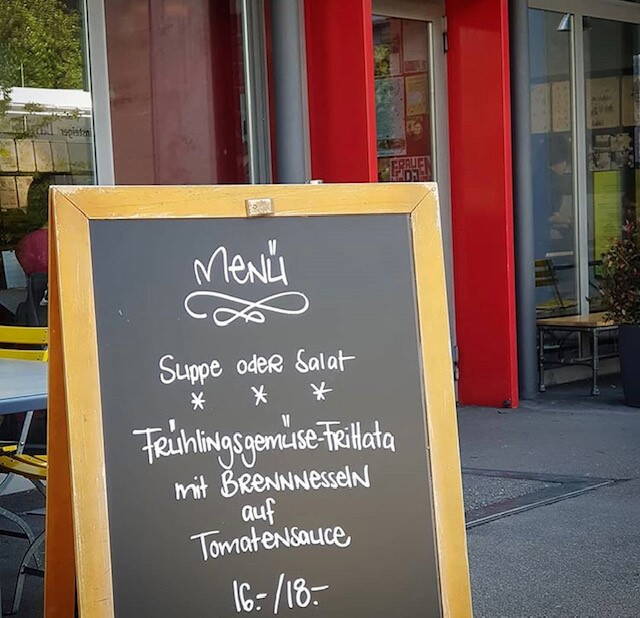 Menü
Suppe oder Salat
* * *
Frühlingsgemüse-Frittata
mit Brennnesseln
auf
Tomatensauce
16.-/18.-